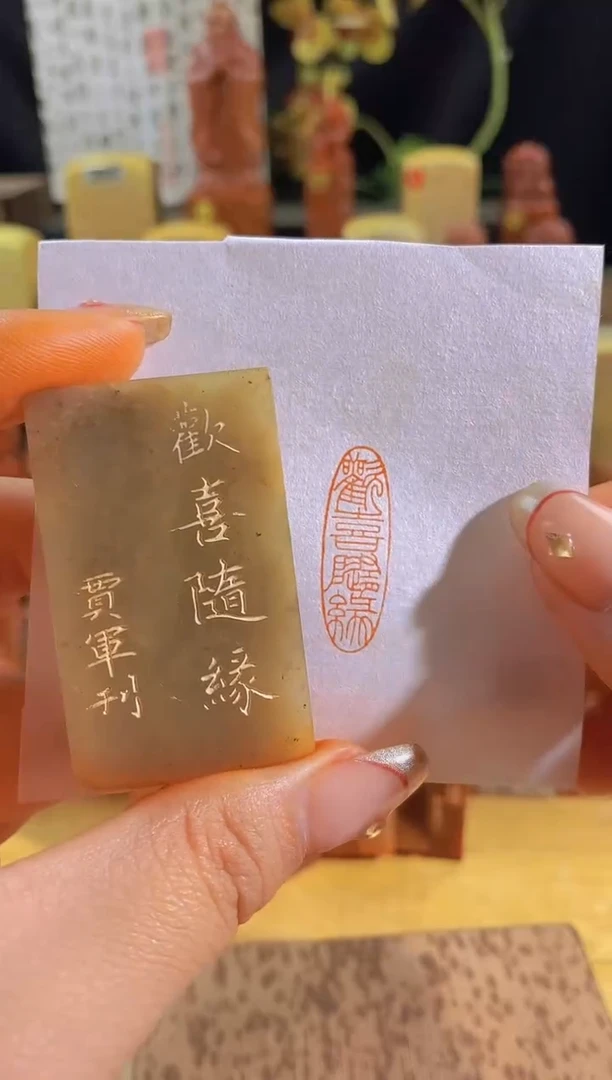 歡喜隨緣
賈軍刊
歡喜隨緣